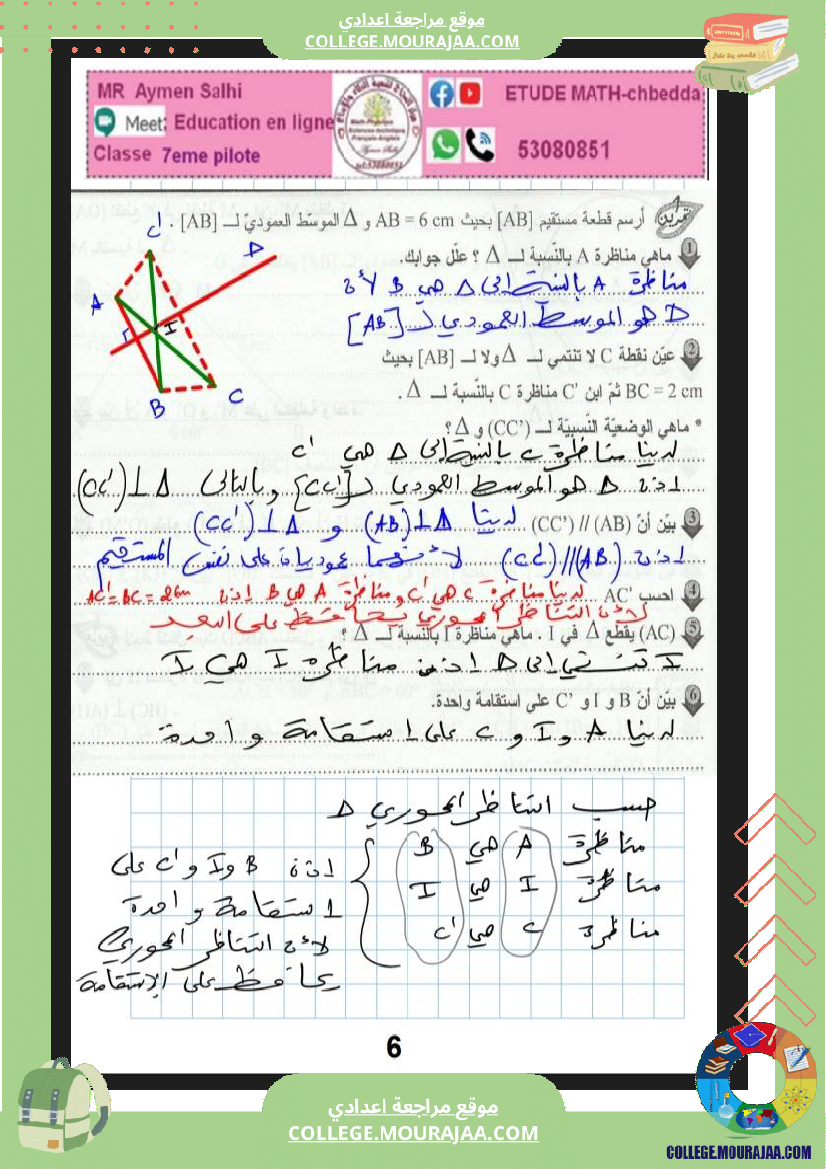 موقع مراجعة اعدادي
COLLEGE.MOURAJAA.COM
MR Aymen Salhi
Meet: Education en ligne
Classe 7eme pilote
ETUDE MATH-chbedda
53080851
تمرين
أرسم قطعة مستقيم [AB] بحيث AB = 6 cm و Δ الموسّط العموديّ لـ [AB] .
1 ماهي مناظرة A بالنّسبة لـ Δ ؟ علّل جوابك.
مناظرة A بالنسبة إلى Δ هي B لأن
Δ هو الموسط العمودي لـ [AB]
2 عيّن نقطة C لا تنتمي لـ Δ ولا لـ [AB] بحيث
BC = 2 cm ثمّ ابن C' مناظرة C بالنّسبة لـ Δ .
* ماهي الوضعيّة النّسبيّة لـ (CC') و Δ ؟
لدينا مناظرة C بالنسبة إلى Δ هي C'
اذن Δ هو الموسط العمودي لـ [CC'] وبالتالي (CC') ⊥ Δ
3 بيّن أنّ (AB) // (CC') لدينا (AB) ⊥ Δ و (CC') ⊥ Δ
اذن (AB) // (CC') لأنهما عموديان على نفس المستقيم
4 احسب AC' لدينا مناظرة C هي C' ومناظرة A هي B اذن AC' = BC = 2cm
لأن التناظر المحوري يحافظ على البعد
5 (AC) يقطع Δ في I . ماهي مناظرة I بالنسبة لـ Δ ؟
I تنتمي إلى Δ اذن مناظرة I هي I
6 بيّن أنّ B و I و C' على استقامة واحدة.
لدينا A و I و C على استقامة واحدة
C'
Δ
A
I
B
C
حسب التناظر المحوري Δ
مناظرة A هي B
مناظرة I هي I
مناظرة C هي C'
اذن B و I و C' على
استقامة واحدة
لأن التناظر المحوري
يحافظ على الاستقامة
6
موقع مراجعة اعدادي
COLLEGE.MOURAJAA.COM
COLLEGE.MOURAJAA.COM